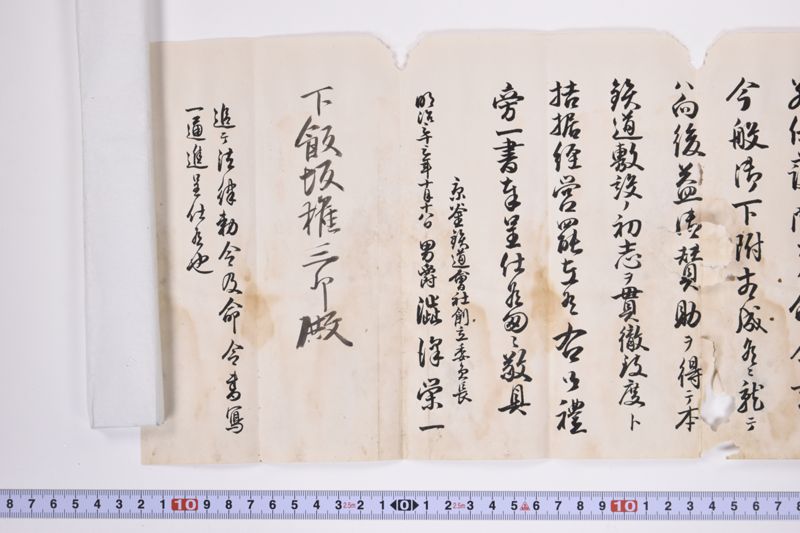 今般御下附相成候ニ就テ
ハ向後益御賛助ヲ得テ本
鉄道敷設ノ初志ヲ貫徹致度ト
拮据経営罷在候右御禮
旁一書奉呈仕候匆々敬具
京釜鉄道會社創立委員長
明治卅三年十月十八日 男爵 澁澤栄一
下飯坂権三郎殿
追テ法律勅令及命令書写
一通進呈仕候也
8 7 6 5 4 3 2 1 10 9 8 7 6 5 4 3 2.5m 2 1 0 1 2 2.5m 3 4 5 6 7 8 9 10 1 2 3 4 5 6 7